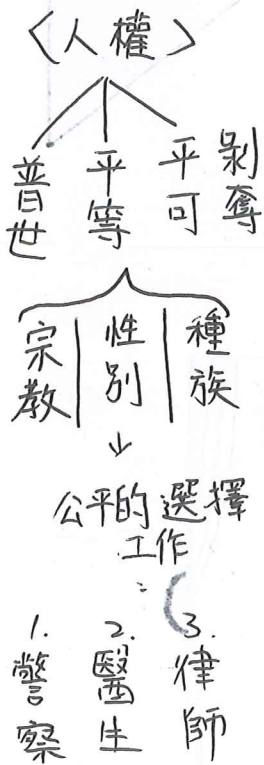 〈人權〉
普世
平等
平可
剝奪
宗教
性別
種族
公平的選擇
工作
:
1.
警察
2.
醫生
3.
律師